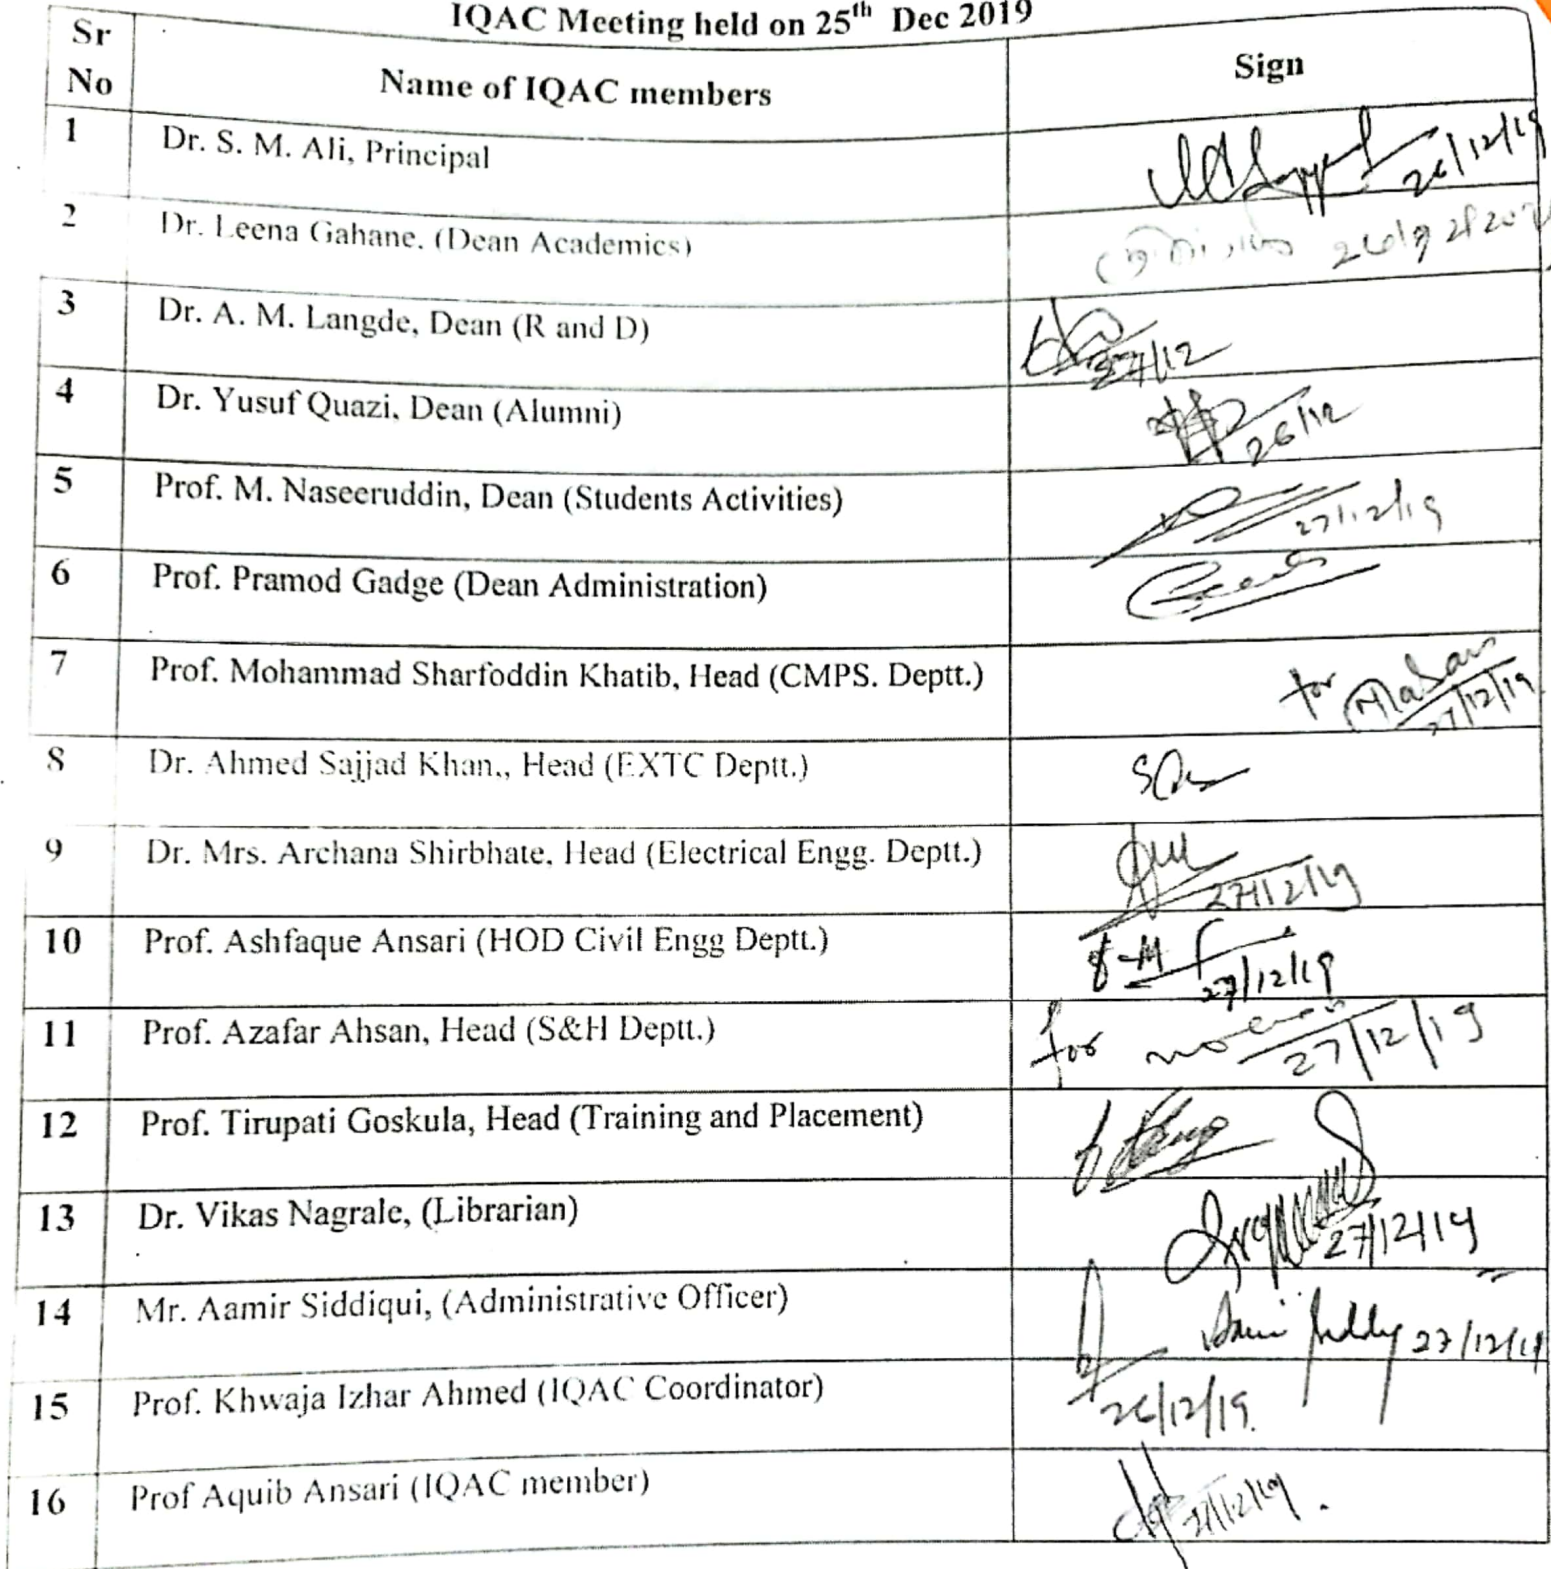 IQAC Meeting held on 25th Dec 2019
Sr No Name of IQAC members Sign
1 Dr. S. M. Ali, Principal 26/12/19
2 Dr. Leena Gahane. (Dean Academics)
3 Dr. A. M. Langde, Dean (R and D) 27/12
4 Dr. Yusuf Quazi, Dean (Alumni) 26/12
5 Prof. M. Naseeruddin, Dean (Students Activities) 27/12/19
6 Prof. Pramod Gadge (Dean Administration)
7 Prof. Mohammad Sharfoddin Khatib, Head (CMPS. Deptt.) for 27/12/19
8 Dr. Ahmed Sajjad Khan., Head (EXTC Deptt.)
9 Dr. Mrs. Archana Shirbhate, Head (Electrical Engg. Deptt.) 27/12/19
10 Prof. Ashfaque Ansari (HOD Civil Engg Deptt.) 27/12/19
11 Prof. Azafar Ahsan, Head (S&H Deptt.) for 27/12/19
12 Prof. Tirupati Goskula, Head (Training and Placement)
13 Dr. Vikas Nagrale, (Librarian) 27/12/19
14 Mr. Aamir Siddiqui, (Administrative Officer) 27/12/19
15 Prof. Khwaja Izhar Ahmed (IQAC Coordinator) 26/12/19
16 Prof Aquib Ansari (IQAC member)